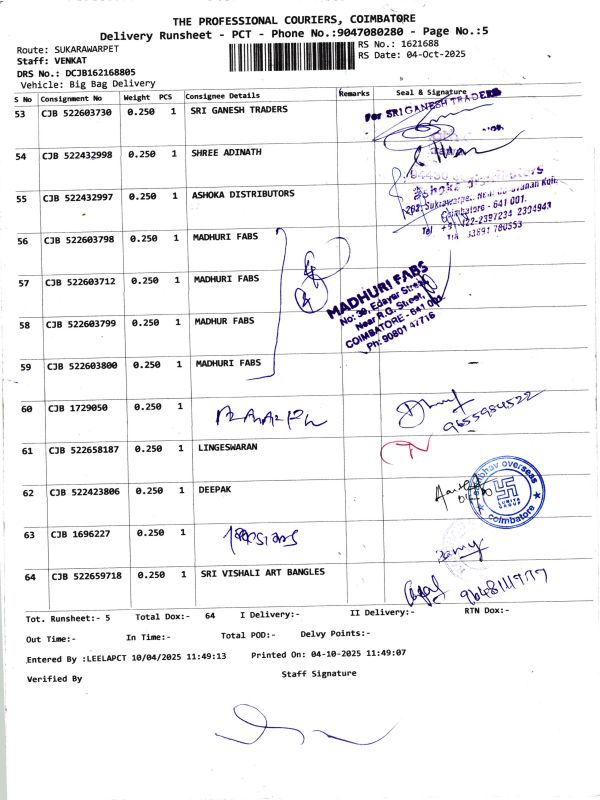 THE PROFESSIONAL COURIERS, COIMBATORE
Delivery Runsheet - PCT - Phone No.:9047080280 - Page No.:5
Route: SUKARAWARPET
RS No.: 1621688
Staff: VENKAT
RS Date: 04-Oct-2025
DRS No.: DCJB162168805
Vehicle: Big Bag Delivery
S No Consignment No Weight PCS Consignee Details Remarks Seal & Signature
53 CJB 522603730 0.250 1 SRI GANESH TRADERS
For SRI GANESH TRADERS
54 CJB 522432998 0.250 1 SHREE ADINATH
55 CJB 522432997 0.250 1 ASHOKA DISTRIBUTORS
ashoka distributors
Coimbatore - 641 001.
56 CJB 522603798 0.250 1 MADHURI FABS
57 CJB 522603712 0.250 1 MADHURI FABS
MADHURI FABS
No: 36, Edayar Street,
Near R.G. Street,
COIMBATORE - 641 001
Ph: 90801 47716
58 CJB 522603799 0.250 1 MADHUR FABS
59 CJB 522603800 0.250 1 MADHURI FABS
60 CJB 1729050 0.250 1
9655984522
61 CJB 522658187 0.250 1 LINGESWARAN
62 CJB 522423806 0.250 1 DEEPAK
overseas
coimbatore
63 CJB 1696227 0.250 1
64 CJB 522659718 0.250 1 SRI VISHALI ART BANGLES
Tot. Runsheet:- 5 Total Dox:- 64 I Delivery:- II Delivery:- RTN Dox:-
Out Time:- In Time:- Total POD:- Delvy Points:-
Entered By :LEELAPCT 10/04/2025 11:49:13 Printed On: 04-10-2025 11:49:07
Verified By Staff Signature